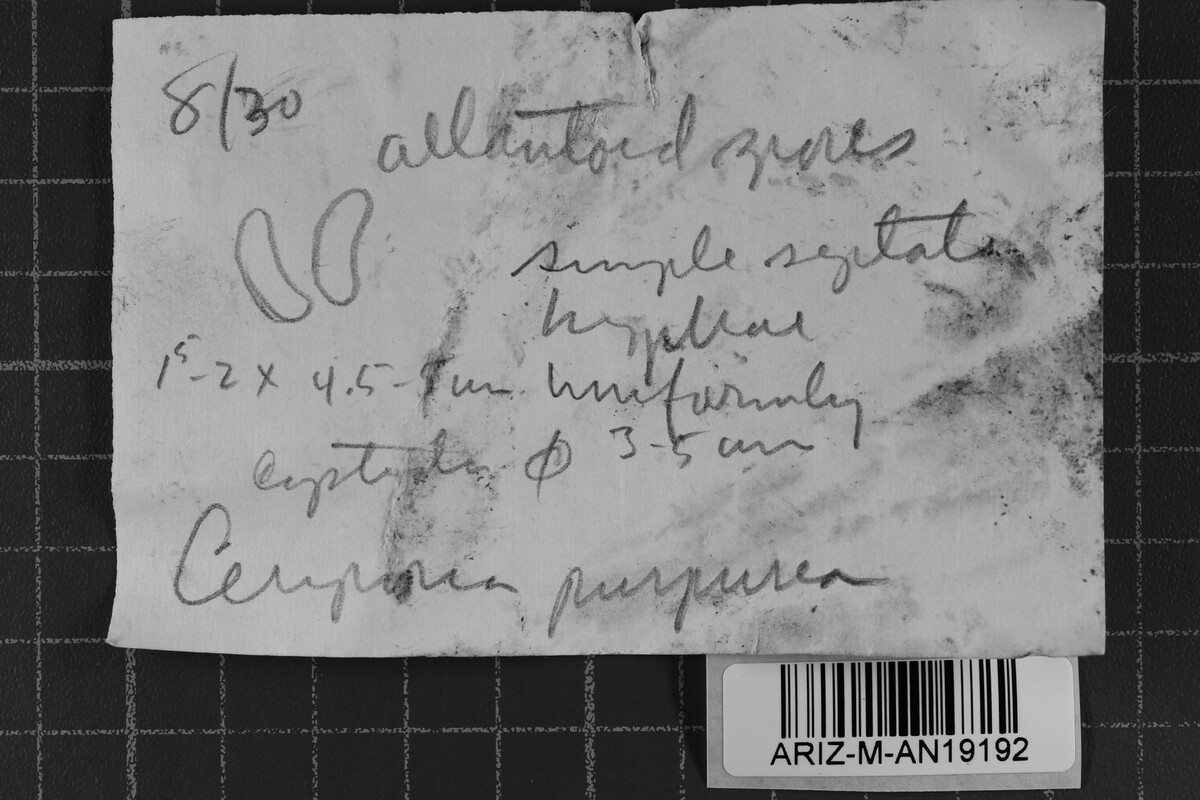 8/30
allantoid spores
simple septate
hyphae
1⁵-2 x 4.5-5 um uniformly
cystidia ϕ 3-5 um
Ceriporia purpurea
ARIZ-M-AN19192